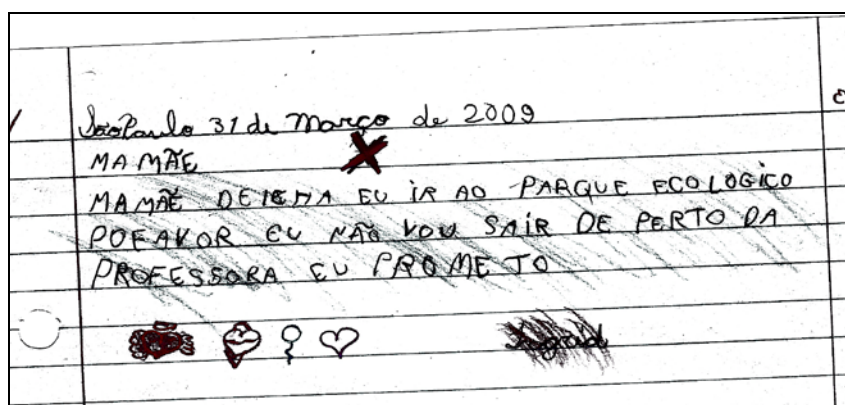 São Paulo 31 de Março de 2009
MAMÃE
MAMÃE DEIEHA EU IR AO PARQUE ECOLOGICO
POEAVOR EU NÃO VOU SAIR DE PERTO DA
PROFESSORA EU PROMETO
Ingrid